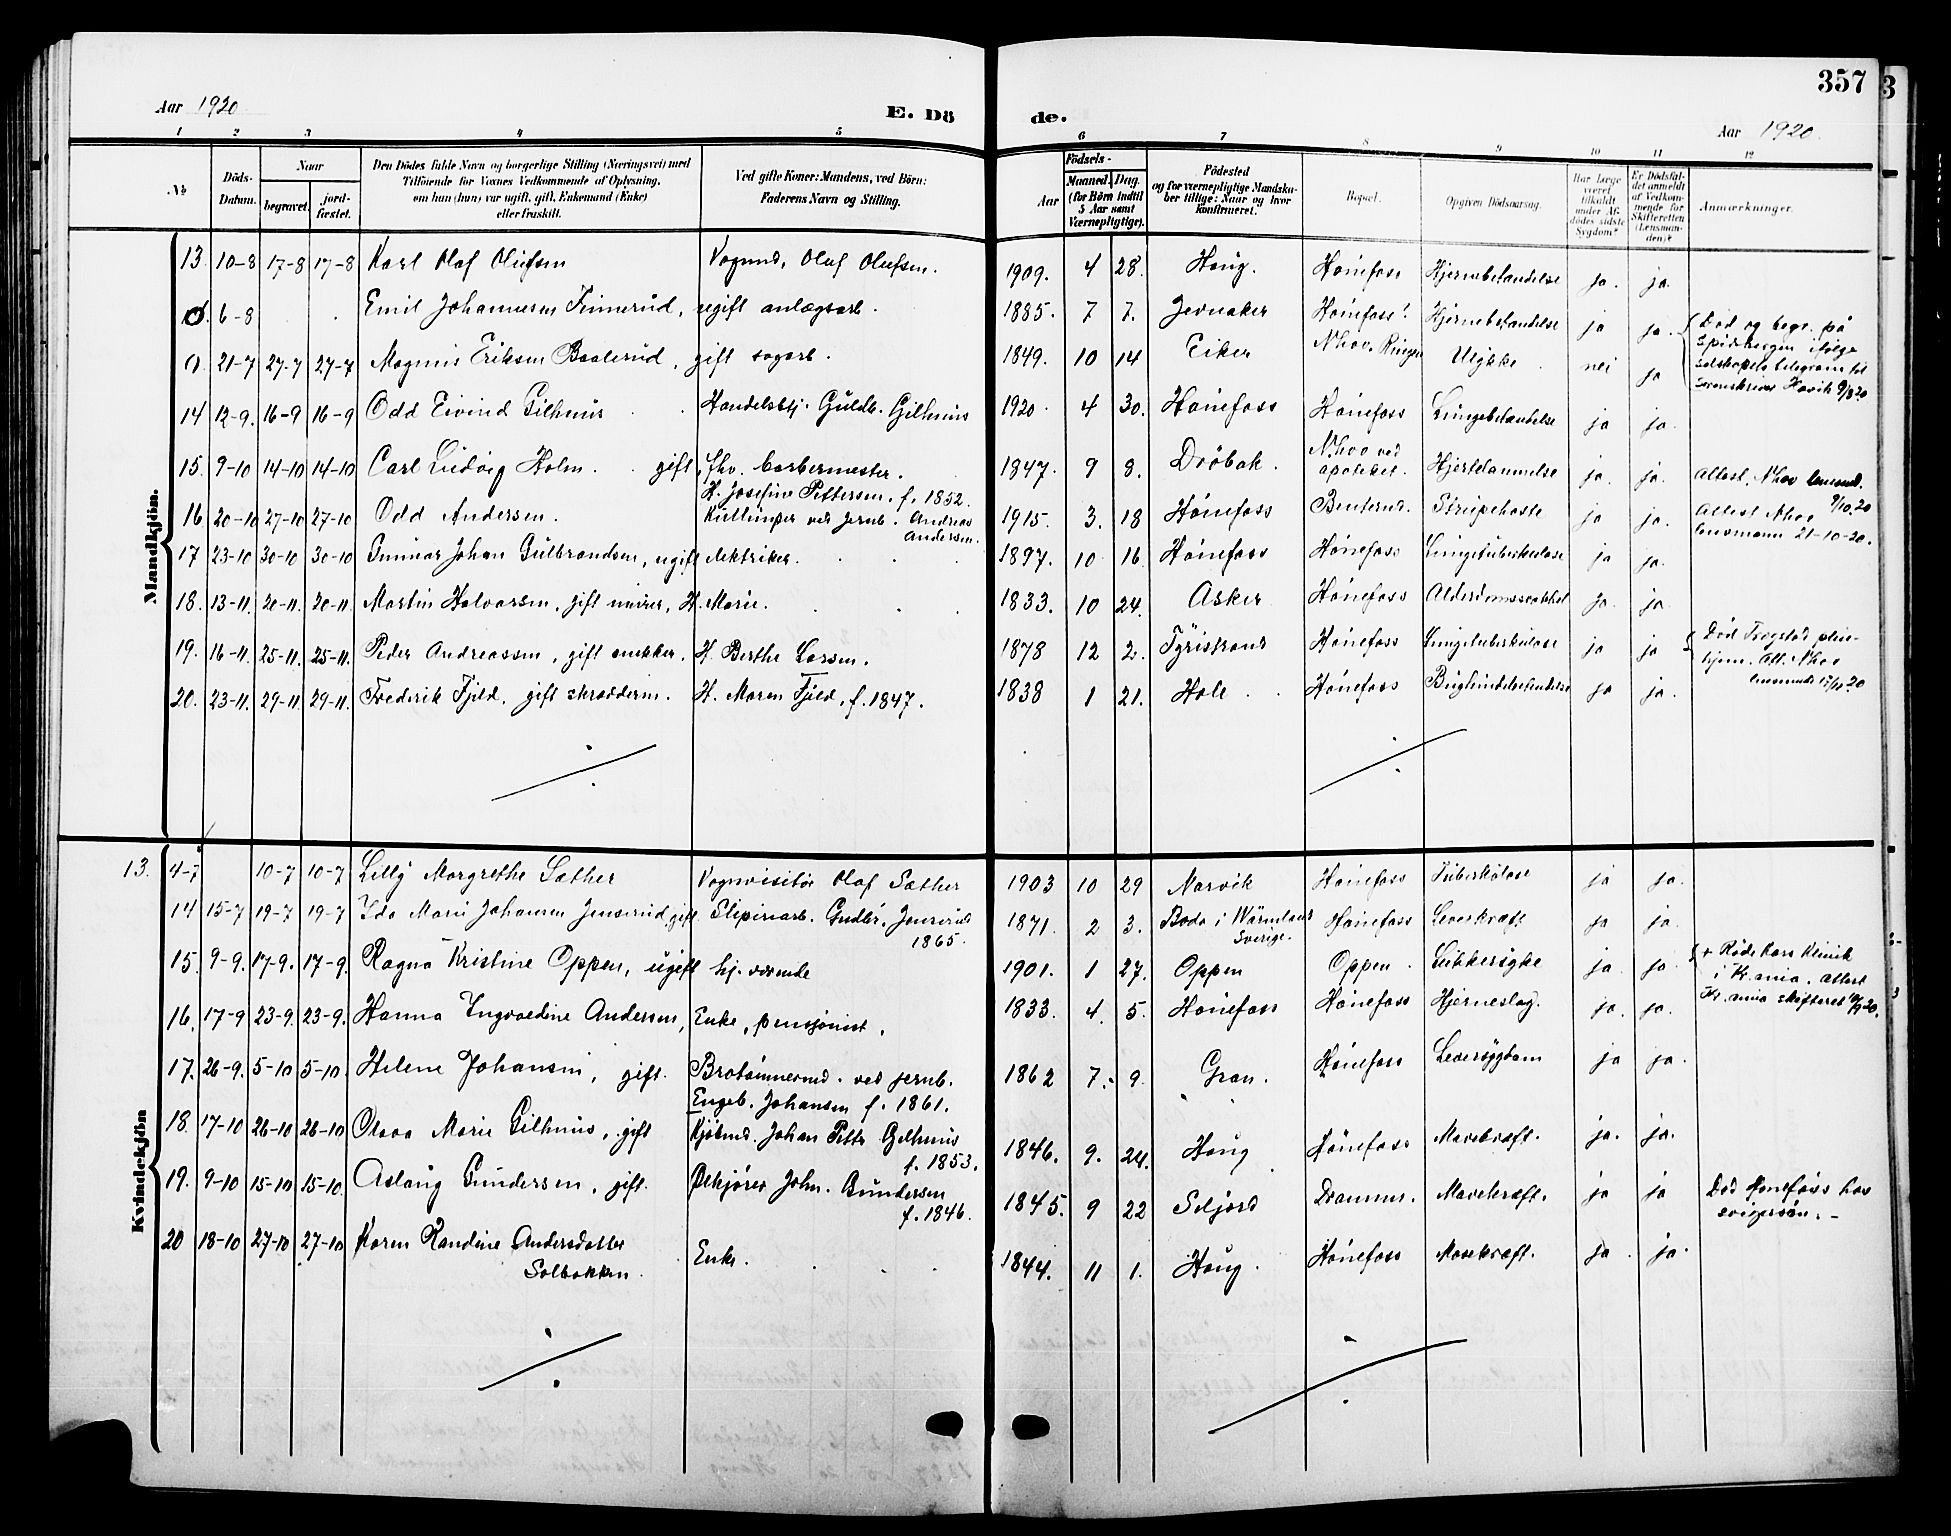 357
Aar 1920
E. Dö
de.
Aar 1920.
1 2 3 4 5 6 7 8 9 10 11 12
№
Döds-
Datum.
Naar
begravet.
jord-
fæstet.
Den Dödes fulde Navn og borgerlige Stilling (Næringsvei) med
Tilföiende for Voxnes Vedkommende af Oplysning,
om hun (hun) var ugift, gift, Enkemand (Enke)
eller fraskilt.
Ved gifte Koner: Mandens, ved Börn:
Faderens Navn og Stilling.
Födsels-
Aar
Maaned. Dag.
(for Börn indtil
5 Aar samt
Værnepligtige).
Födested
og for værnepligtige Mandska-
ber tillige: Naar og hvor
konfirmeret.
Bopæl.
Opgiven Dödsaarsag.
Har Læge
været
tilkaldt
under Af-
dödes sidste
Sygdom?
Er Dödsfal-
det anmeldt
af Vedkom-
mende for
Skifteretten
(Lensman-
den)?
Anmærkninger.
Mandkjön.
13. 10-8 17-8 17-8 Karl Olaf Olufsen Vognmd. Olaf Olufsen. 1909. 4 28. Houg. Hønefoss Hjernebetændelse ja. ja.
0. 6-8 Emil Johannesen Finnerud, ugift anlægsarb. 1885. 7 7. Jevnaker Hønefoss! Hjernebetændelse ja ja.
Død og begr. på
Spidsbergen ifølge
selskapets telegram til
Sorenskriver Hovik 9/8 20
0 21-7 27-7 27-7 Magnus Eriksen Baalerud, gift sagarb. 1849. 10 14 Eiker N.hov. Ringer. Ulykke nei ja
14 12-9. 16-9 16-9 Odd Eivind Gilhuus Handelsbtj. Guldb. Gilhuus 1920. 4 30. Hønefoss Hønefoss Lungebetændelse ja ja.
15. 9-10 14-10 14-10 Carl Ludvig Holm. gift, fhv. barbermester. 1847. 9 8. Drøbak. N.hov ved
apoteket. Hjertelammelse ja. ja. Attest. N.hov lensmd.
9/10.20
H. Josefine Pettersen. f. 1852.
16 20-10 27-10 27-10 Odd Andersen. ved jernb. Andreas
Andersen. 1915. 3. 18 Hønefoss Benterud. Strupehoste ja ja. Attest N.hov
lensmann 21-10-20.
17 23-10 30-10 30-10 Gunnar Johan Gulbrandsen, ugift elektriker. 1897. 10 16 Hønefoss Hønefoss Lungetuberkulose ja ja.
18. 13-11. 20-11. 20-11. Martin Halvorsen, gift murer, H. Marie. 1833. 10 24. Asker Hønefoss Alderdomssvakhet ja. ja.
19. 16-11. 25-11. 25-11. Peder Andreassen, gift snekker. H. Berthe Larsen. 1878 12 2. Tyristrand Hønefoss Lungetuberkulose ja ja Død Tregstad pleie-
hjem. Att. N.hov
20. 23-11. 29-11. 29-11. Frederik Fjeld, gift skræddern. H. Maren Fjeld, f. 1847. 1838 1 21. Hole Hønefoss ja ja.
Kvindekjön
13. 4-7 10-7 10-7 Lilly Margrethe Sæther Vognvisitør Olaf Sæther 1903 10 29 Narvik Hønefoss Tuberkulose ja ja.
14 15-7 19-7 19-7 Ida Marie Johansen Jenserud, gift Sliperiarb. Gudbr. Jenserud
1865. 1871. 2 3. Boda i Wärmland
Sverige. Hønefoss Leverkræft ja ja.
15. 9-9. 17-9. 17-9. Ragna Kristine Oppen, ugift hj. værende 1901. 1 27. Oppen Oppen Sukkersyke ja ja. + Røde Kors Klinik
i Kr.ania, attest
Kr.ania skifteret 20.
16. 17-9 23-9. 23-9. Hanna Ingvardine Andersen, Enke, pensjonist. 1833. 4. 5. Hønefoss Hønefoss Hjerneslag. ja. ja.
17. 26-9. 5-10 5-10. Helene Johansen, gift. Brotømmermd. ved jernb.
Engeb. Johansen f. 1861. 1862 7. 9. Gran. Hønefoss Leversygdom ja ja.
18. 17-10 26-10 26-10 Olava Marie Gilhuus, gift Kjøbmd. Johan Petter Gilhuus
f. 1853. 1846. 9. 24. Houg Hønefoss Mavekræft. ja. ja.
19. 9-10 15-10 15-10. Aslaug Gundersen, gift. John. Gundersen
f. 1846. 1845. 9 22 Seljord Drammen. Mavekræft. ja ja Død Hønefoss hos
svigersøn.
20 18-10 27-10 27-10 Karen Randine Andersdatter
Solbakken Enke. 1844. 11 1. Houg Hønefoss Mavekræft. ja ja.